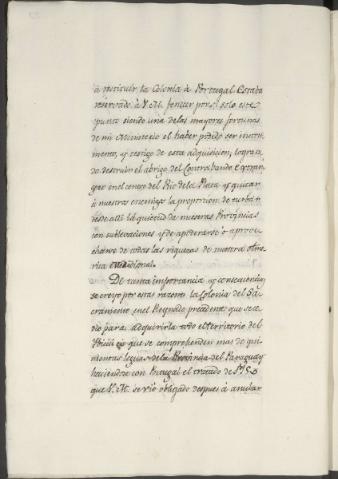 à restituir la Colonia à Portugal. Estaba
reservado à V. M. fenecer por sì solo este
punto siendo una de las mayores fortunas
de mi Ministerio el haber podido ser instru-
mento, y testigo de esta adquisicion, logran-
do destruir el abrigo del Contrabando
que en el centro del Rio de la Plata y quitar
à nuestros enemigos la proporcion de turbar
desde alli la quietud de nuestras Provincias
con sublevaciones y de apoderarse o aprove-
charse de todas las riquezas de nuestra Ame-
rica meridional.
De tanta importancia y consequencia
se creyo por estas razones la Colonia del Sa-
cramento en el Reynado precedente que se ce-
dio para adquirirla todo el territorio del
en que se comprehenden mas de qui-
nientas leguas de la Provincia del Paraguay
haciendose con Portugal el tratado de 1750
que V. M. se viò obligado despues à anular